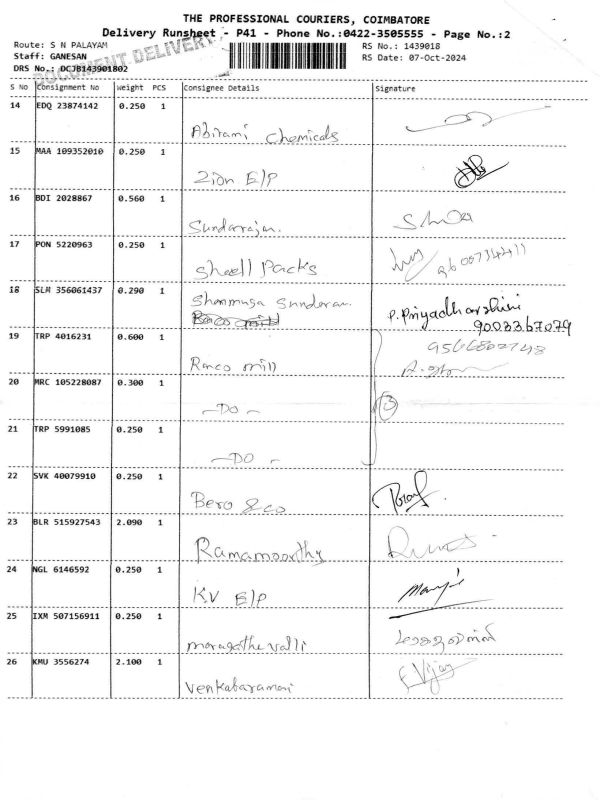 THE PROFESSIONAL COURIERS, COIMBATORE
Delivery Runsheet - P41 - Phone No.:0422-3505555 - Page No.:2
Route: S N PALAYAM
RS No.: 1439018
Staff: GANESAN
RS Date: 07-Oct-2024
DRS No.: DCJB143901802
DOCUMENT DELIVERY
S No Consignment No Weight PCS Consignee Details Signature
14 EDQ 23874142 0.250 1
Abirami Chemicals
15 MAA 109352010 0.250 1
Zion E/P
16 BDI 2028867 0.560 1
Sundarrajan.
17 PON 5220963 0.250 1
Shell Packs
9600734211
18 SLM 356061437 0.290 1
Shanmuga Sundaram
P. Priyadharshini
9003367079
19 TRP 4016231 0.600 1
9566802748
Ranco mill
20 MRC 105228087 0.300 1
-DO-
3
21 TRP 5991085 0.250 1
-DO-
22 SVK 40079910 0.250 1
Bero & co
23 BLR 515927543 2.090 1
Ramamoorthy
24 NGL 6146592 0.250 1
KV E/P
25 IXM 507156911 0.250 1
maragathevalli
26 KMU 3556274 2.100 1
Venkataramani
F. Vijay